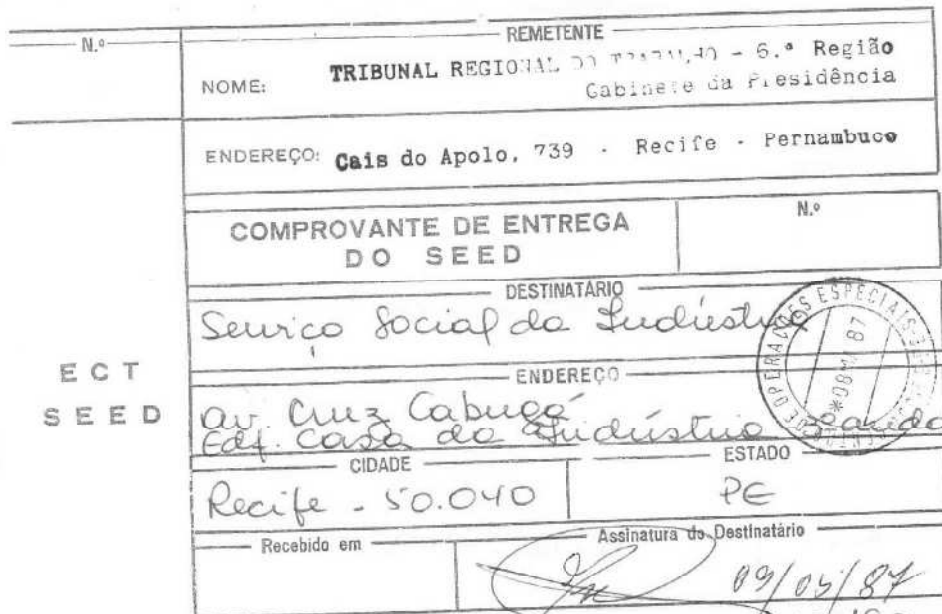 N.º
REMETENTE
NOME: TRIBUNAL REGIONAL DO TRABALHO - 6.ª Região
Gabinete da Presidência
ENDEREÇO: Cais do Apolo, 739 - Recife - Pernambuco
COMPROVANTE DE ENTREGA
DO SEED
N.º
DESTINATÁRIO
Serviço Social da Indústria
OPERAÇÕES ESPECIAIS
ECT
SEED
ENDEREÇO
Av. Cruz Cabugá
Edf. Casa da Indústria
CIDADE
ESTADO
Recife - 50.040
PE
Recebido em
Assinatura do Destinatário
09/05/87